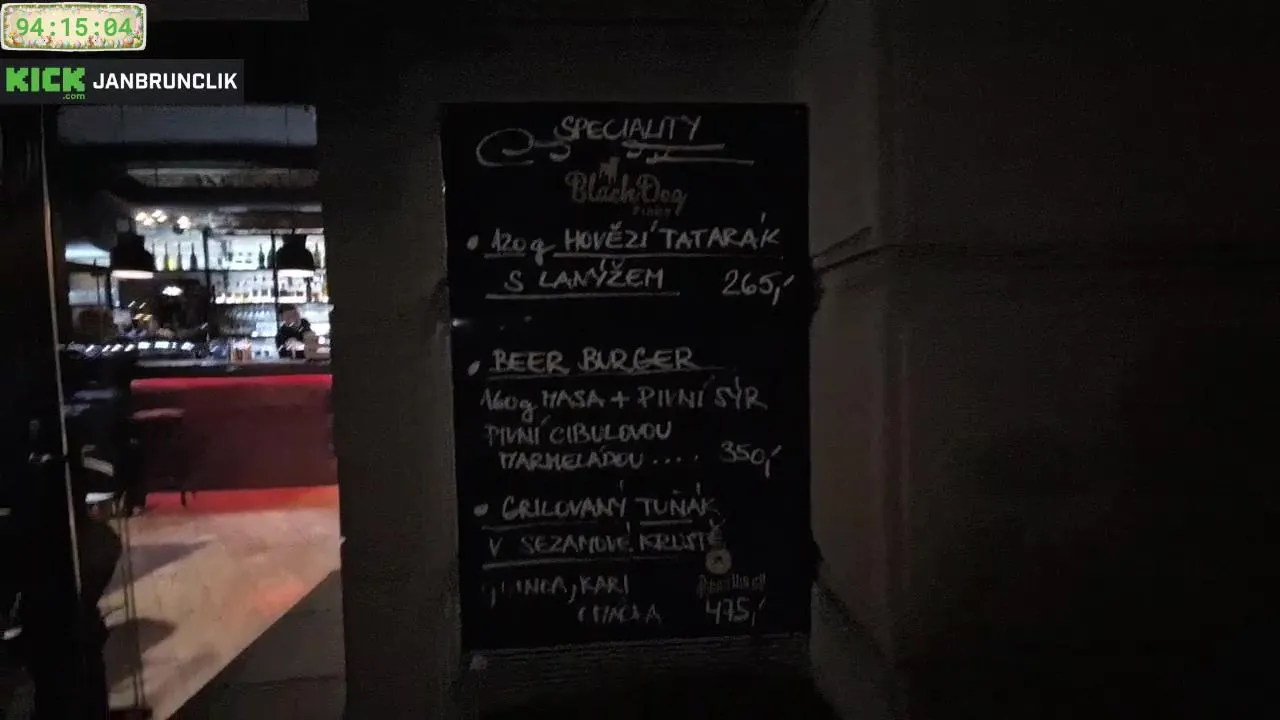 94:15:04
KICK
.com
JANBRUNCLIK
SPECIALITY
Black Dog
• 120g HOVĚZÍ TATARÁK
S LANÝŽEM 265,-
• BEER BURGER
160g MASA + PIVNÍ SÝR
PIVNÍ CIBULOVOU
MARMELÁDOU .... 350,-
• GRILOVANÝ TUŇÁK
V SEZAMOVÉ KRUSTĚ
KARI
475,-